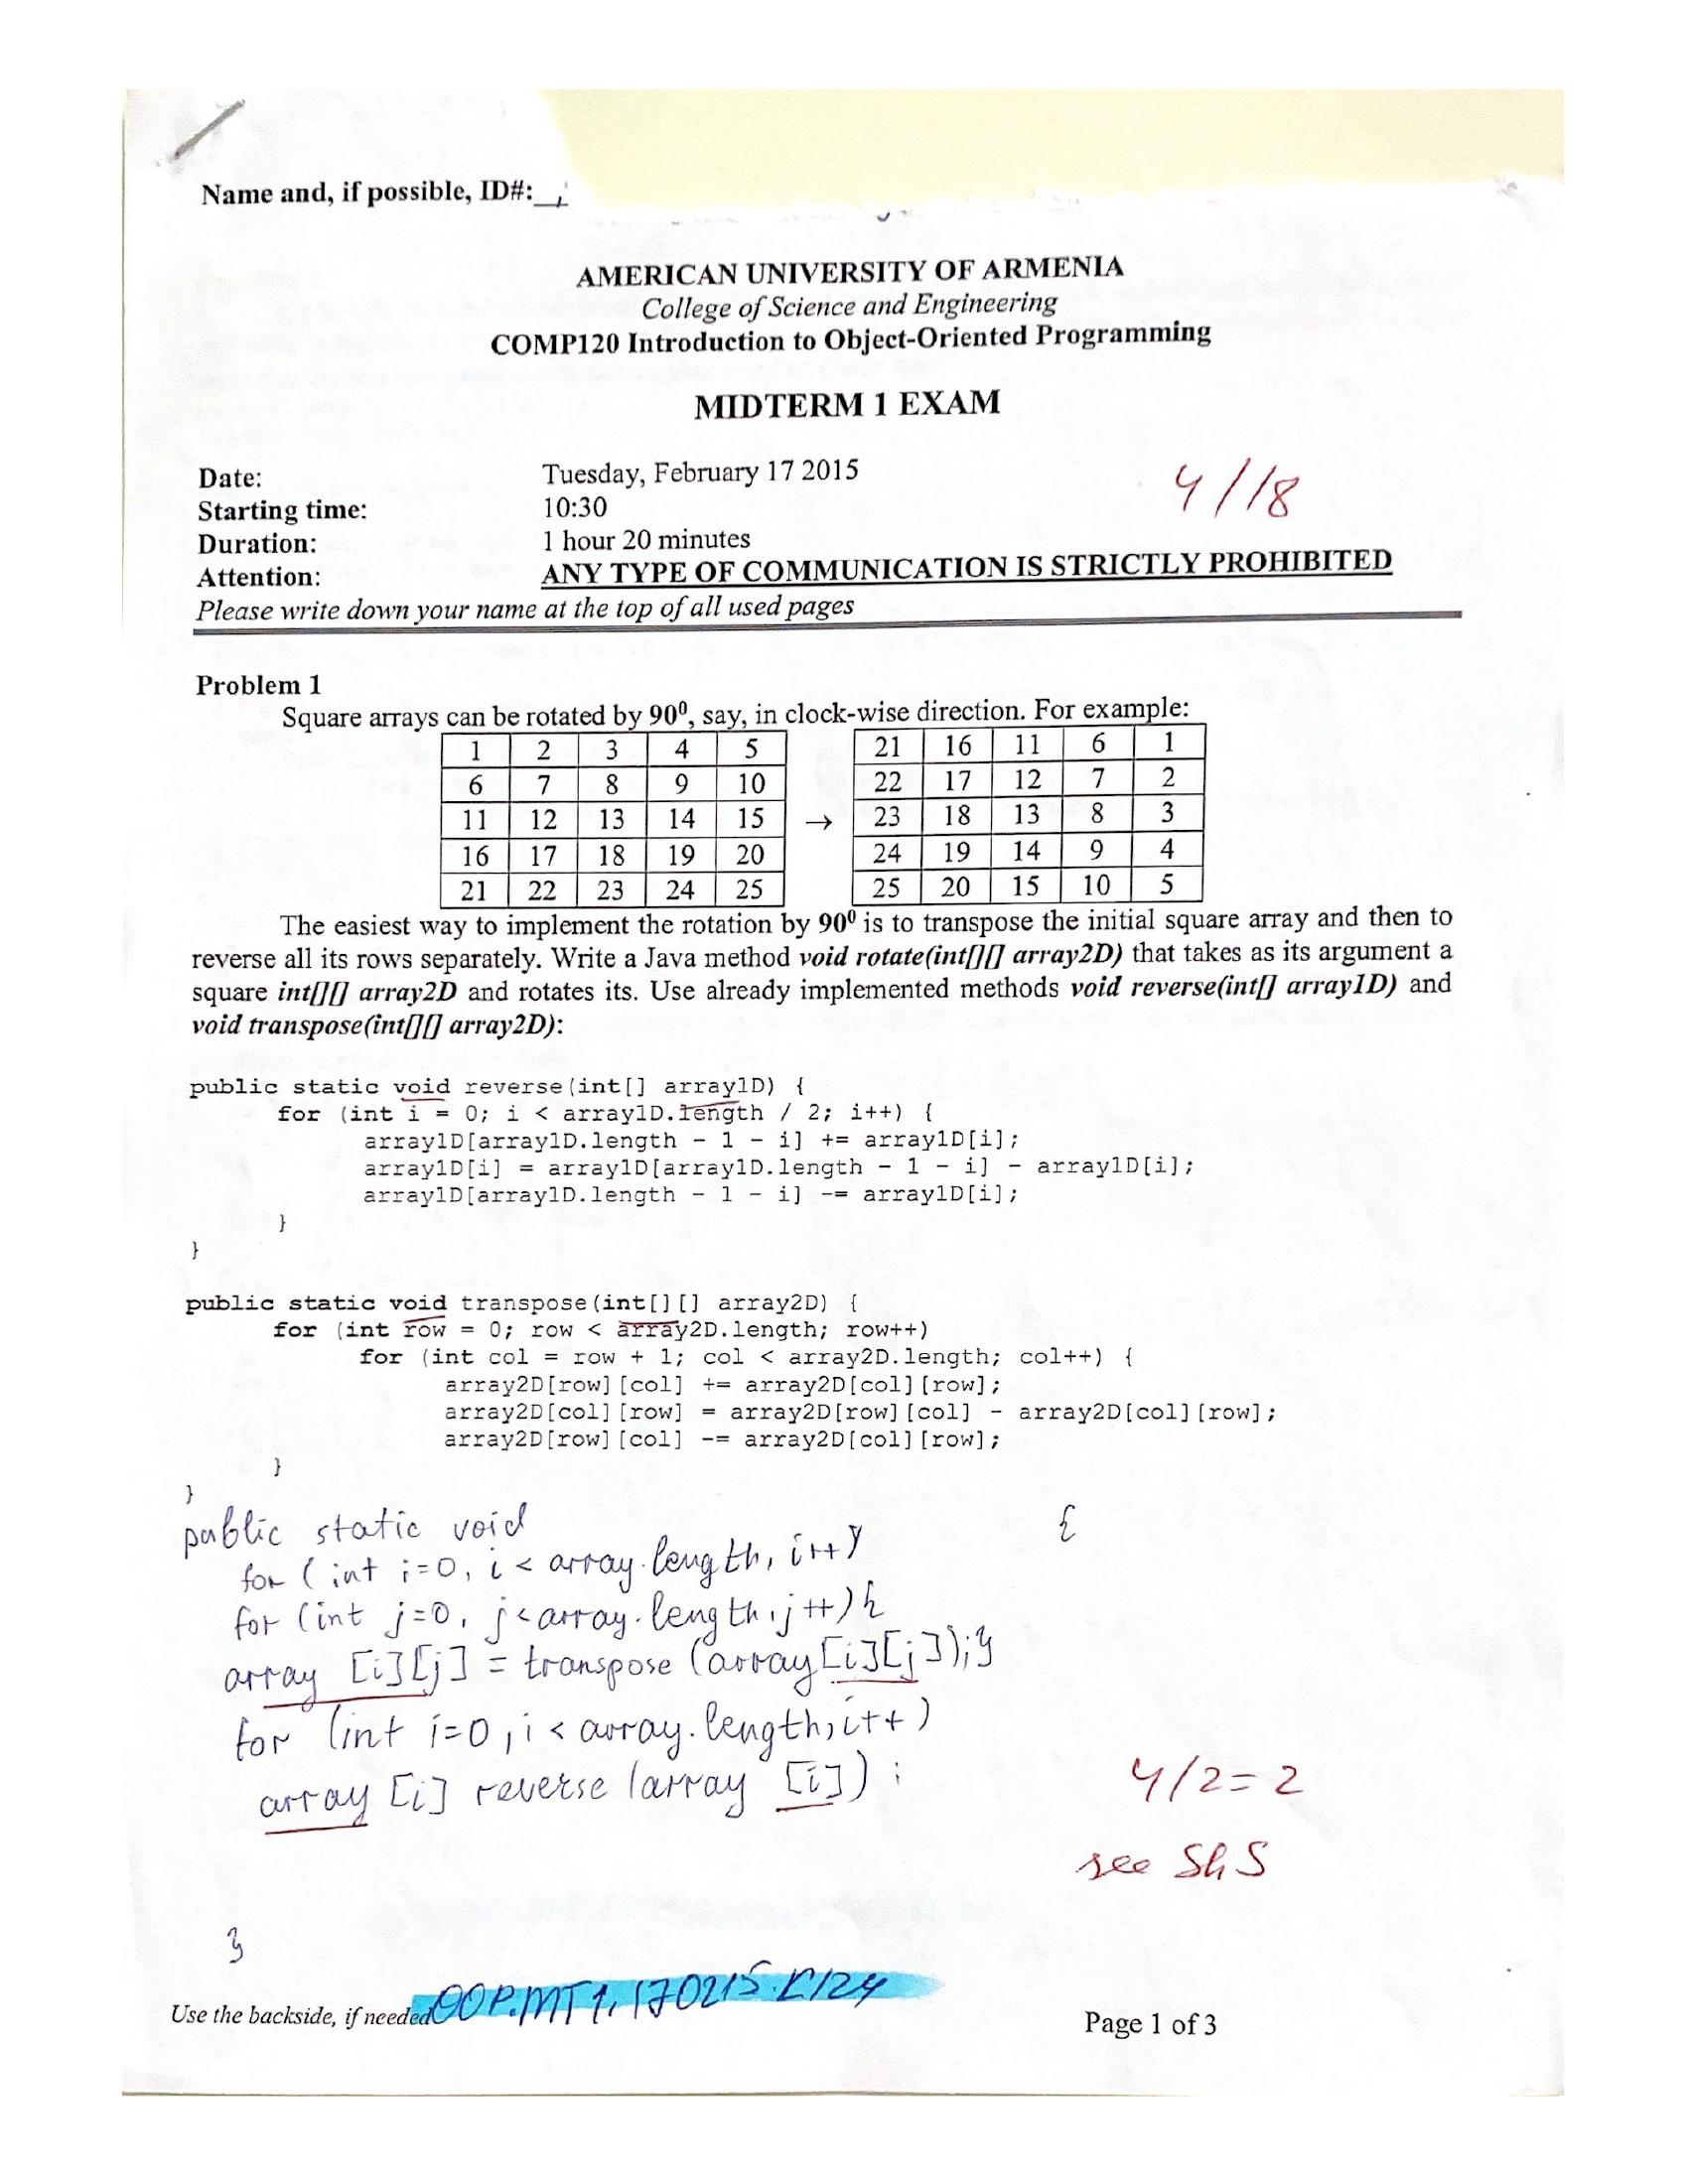 Name and, if possible, ID#:
AMERICAN UNIVERSITY OF ARMENIA
College of Science and Engineering
COMP120 Introduction to Object-Oriented Programming
MIDTERM 1 EXAM
Date: Tuesday, February 17 2015
4/18
Starting time: 10:30
Duration: 1 hour 20 minutes
Attention: ANY TYPE OF COMMUNICATION IS STRICTLY PROHIBITED
Please write down your name at the top of all used pages
Problem 1
Square arrays can be rotated by 90⁰, say, in clock-wise direction. For example:
1 2 3 4 5 21 16 11 6 1
6 7 8 9 10 22 17 12 7 2
11 12 13 14 15 → 23 18 13 8 3
16 17 18 19 20 24 19 14 9 4
21 22 23 24 25 25 20 15 10 5
The easiest way to implement the rotation by 90⁰ is to transpose the initial square array and then to
reverse all its rows separately. Write a Java method void rotate(int[][] array2D) that takes as its argument a
square int[][] array2D and rotates its. Use already implemented methods void reverse(int[] array1D) and
void transpose(int[][] array2D):
public static void reverse(int[] array1D) {
for (int i = 0; i < array1D.length / 2; i++) {
array1D[array1D.length - 1 - i] += array1D[i];
array1D[i] = array1D[array1D.length - 1 - i] - array1D[i];
array1D[array1D.length - 1 - i] -= array1D[i];
}
}
public static void transpose(int[][] array2D) {
for (int row = 0; row < array2D.length; row++)
for (int col = row + 1; col < array2D.length; col++) {
array2D[row][col] += array2D[col][row];
array2D[col][row] = array2D[row][col] - array2D[col][row];
array2D[row][col] -= array2D[col][row];
}
}
public static void {
for (int i=0, i < array.length, i++)
for (int j=0, j<array.length, j++) {
array [i][j] = transpose (array[i][j]);}
for (int i=0, i < array.length, i++)
array [i] reverse (array [i]);
4/2=2
see Sh S
}
Use the backside, if needed
OOP.MT1.170215.K124
Page 1 of 3